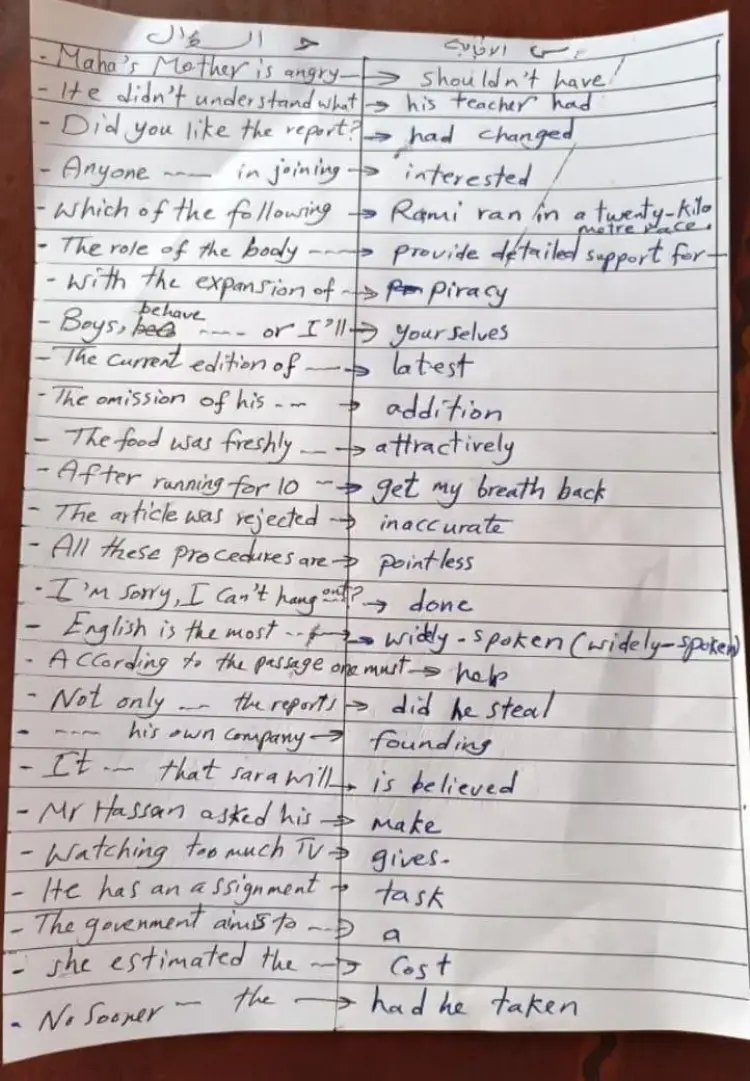 حل السؤال
- Maha's Mother is angry → shouldn't have
- He didn't understand what → his teacher had
- Did you like the report? → had changed
- Anyone ---- in joining → interested
- Which of the following → Rami ran in a twenty-kilo
metre race.
- The role of the body ---- → provide detailed support for
- With the expansion of → piracy
- Boys, behave ---- or I'll → yourselves
- The current edition of → latest
- The omission of his --- → addition
- The food was freshly --- → attractively
- After running for 10 -- → get my breath back
- The article was rejected → inaccurate
- All these procedures are → pointless
- I'm sorry, I can't hang out? → done
- English is the most --- → widly-spoken (widely-spoken)
- According to the passage one must → help
- Not only --- the reports → did he steal
- ---- his own company → founding
- It --- that sara will → is believed
- Mr Hassan asked his → make
- Watching too much TV → gives.
- He has an assignment → task
- The govenment aims to ---> a
- she estimated the ---> Cost
- No Sooner -- the → had he taken